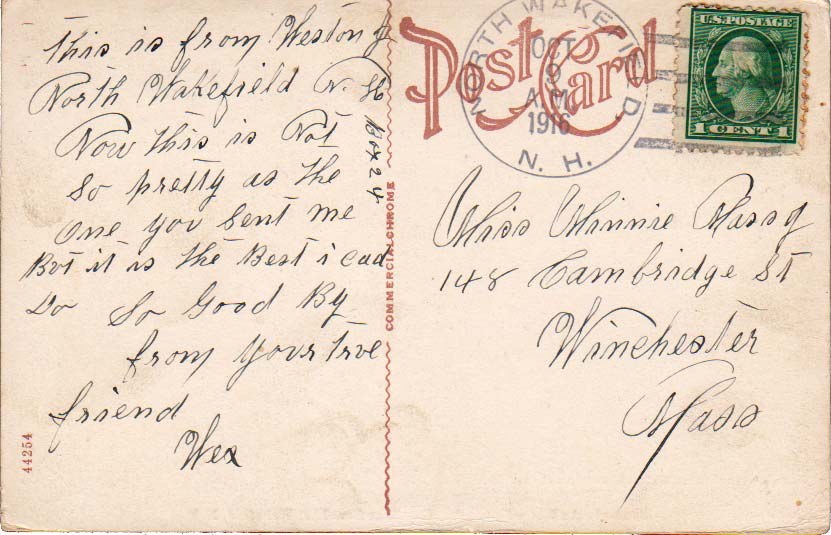 this is from Weston J
North Wakefield N. H
Box 24
Now this is Not
So pretty as the
one you Sent me
But it is the Best i cad
Do So Good By
from your true
friend
Wes
44254
COMMERCIALCHROME
Post Card
NORTH WAKEFIELD,
OCT
9
A.M
1916
N. H.
U.S. POSTAGE
1 CENT 1
Miss Minnie
148 Cambridge St
Winchester
Mass